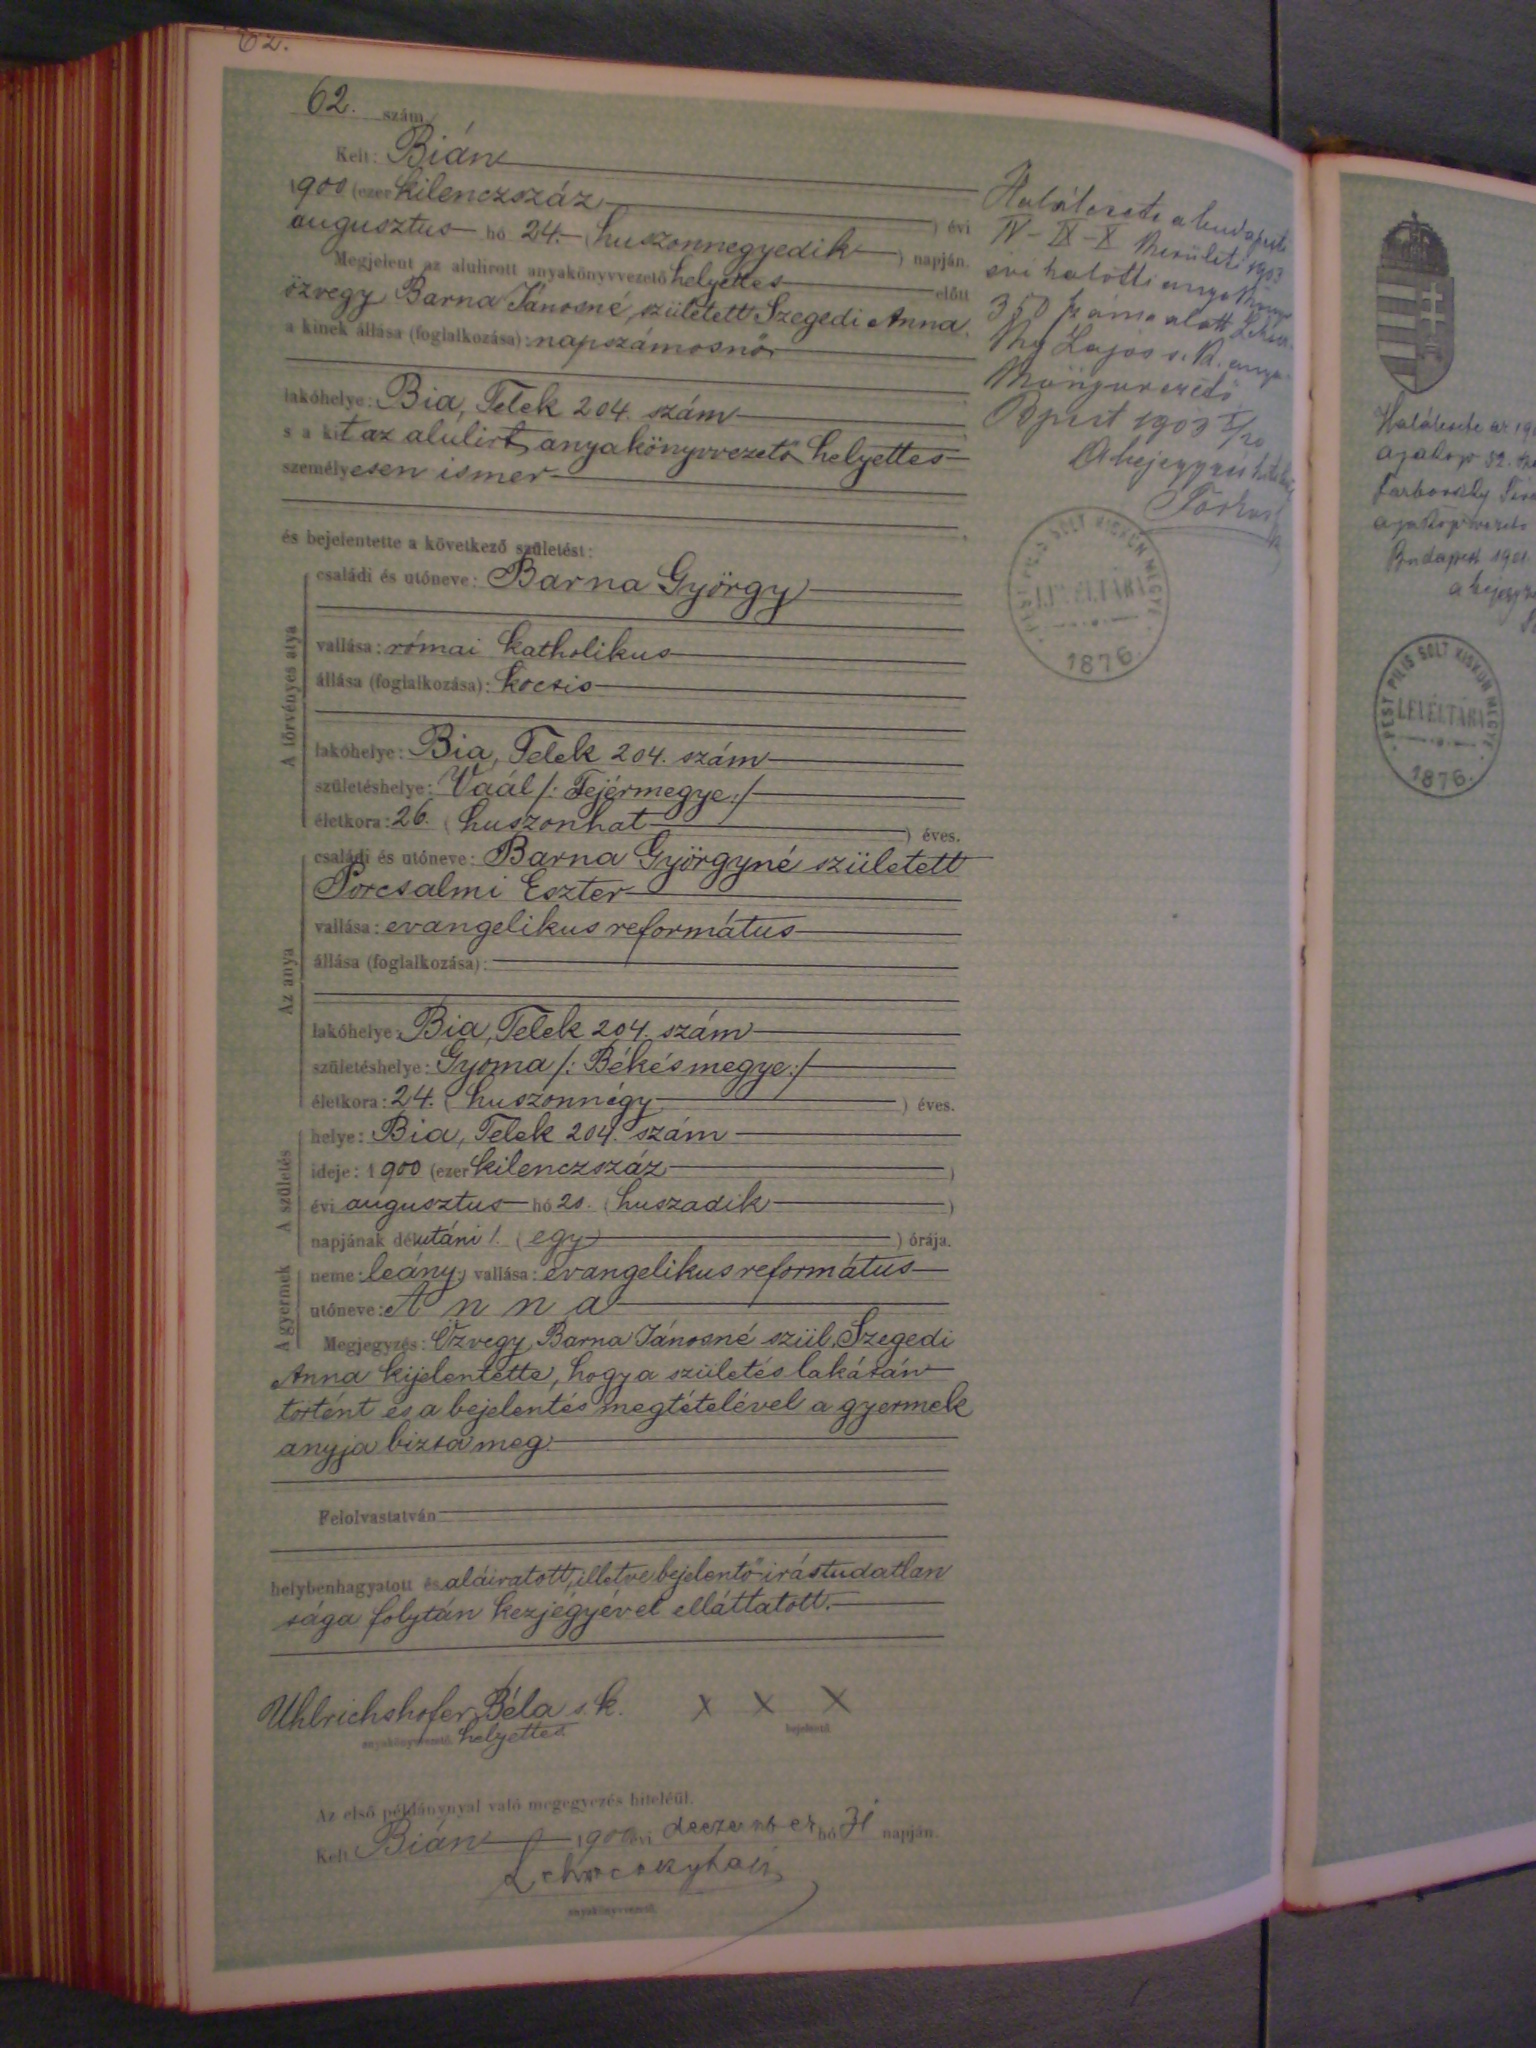 62.
62. szám
Kelt: Bián
1900 (ezer kilenczszáz) évi
augusztus hó 24. (huszonnegyedik) napján.
Megjelent az alulirott anyakönyvvezető helyettes előtt
özvegy Barna Jánosné, született Szegedi Anna
a kinek állása (foglalkozása): napszámosnő
lakóhelye: Bia, Telek 204. szám
s a kit az alulirt anyakönyvvezető helyettes
személyesen ismer
és bejelentette a következő születést:
A törvényes atya
családi és utóneve: Barna György
vallása: római katholikus
állása (foglalkozása): kocsis
lakóhelye: Bia, Telek 204. szám
születéshelye: Vaál /: Fejérmegye :/
életkora: 26. (huszonhat) éves.
Az anya
családi és utóneve: Barna Györgyné született
Porcsalmi Eszter
vallása: evangelikus református
állása (foglalkozása):
lakóhelye: Bia, Telek 204. szám
születéshelye: Gyoma /: Békésmegye :/
életkora: 24. (huszonnégy) éves.
A születés
helye: Bia, Telek 204. szám
ideje: 1900 (ezer kilenczszáz)
évi augusztus hó 20. (huszadik)
napjának délutáni 1. (egy) órája.
A gyermek
neme: leány; vallása: evangelikus református
utóneve: Anna
Megjegyzés: Özvegy Barna Jánosné szül. Szegedi
Anna kijelentette, hogy a születés lakásán
történt és a bejelentés megtételével a gyermek
anyja bizta meg.
Felolvastatván
helybenhagyatott és aláiratott, illetve bejelentő irástudatlan
sága folytán kezjegyével elláttatott.
Uhlrichshofer Béla s. k. x x x
anyakönyvvezető helyettes bejelentő
Az első példánynyal való megegyezés hiteléül.
Kelt Bián 1900 évi deczember hó 31 napján.
anyakönyvvezető.
Halálesete a budapesti
IV-IX-X kerületi 1903
évi halotti anyakönyv
350 száma alatt
Lajos s. k. anya-
könyvvezető
Bpest 1903 X/20
A bejegyzés hiteléül
PEST PILIS SOLT KISKUN MEGYE
LEVÉLTÁRA
1876.
Halálesete az 191
52.
Budapest 1901.
a bejegyz
PEST PILIS SOLT KISKUN MEGYE
LEVÉLTÁRA
1876.